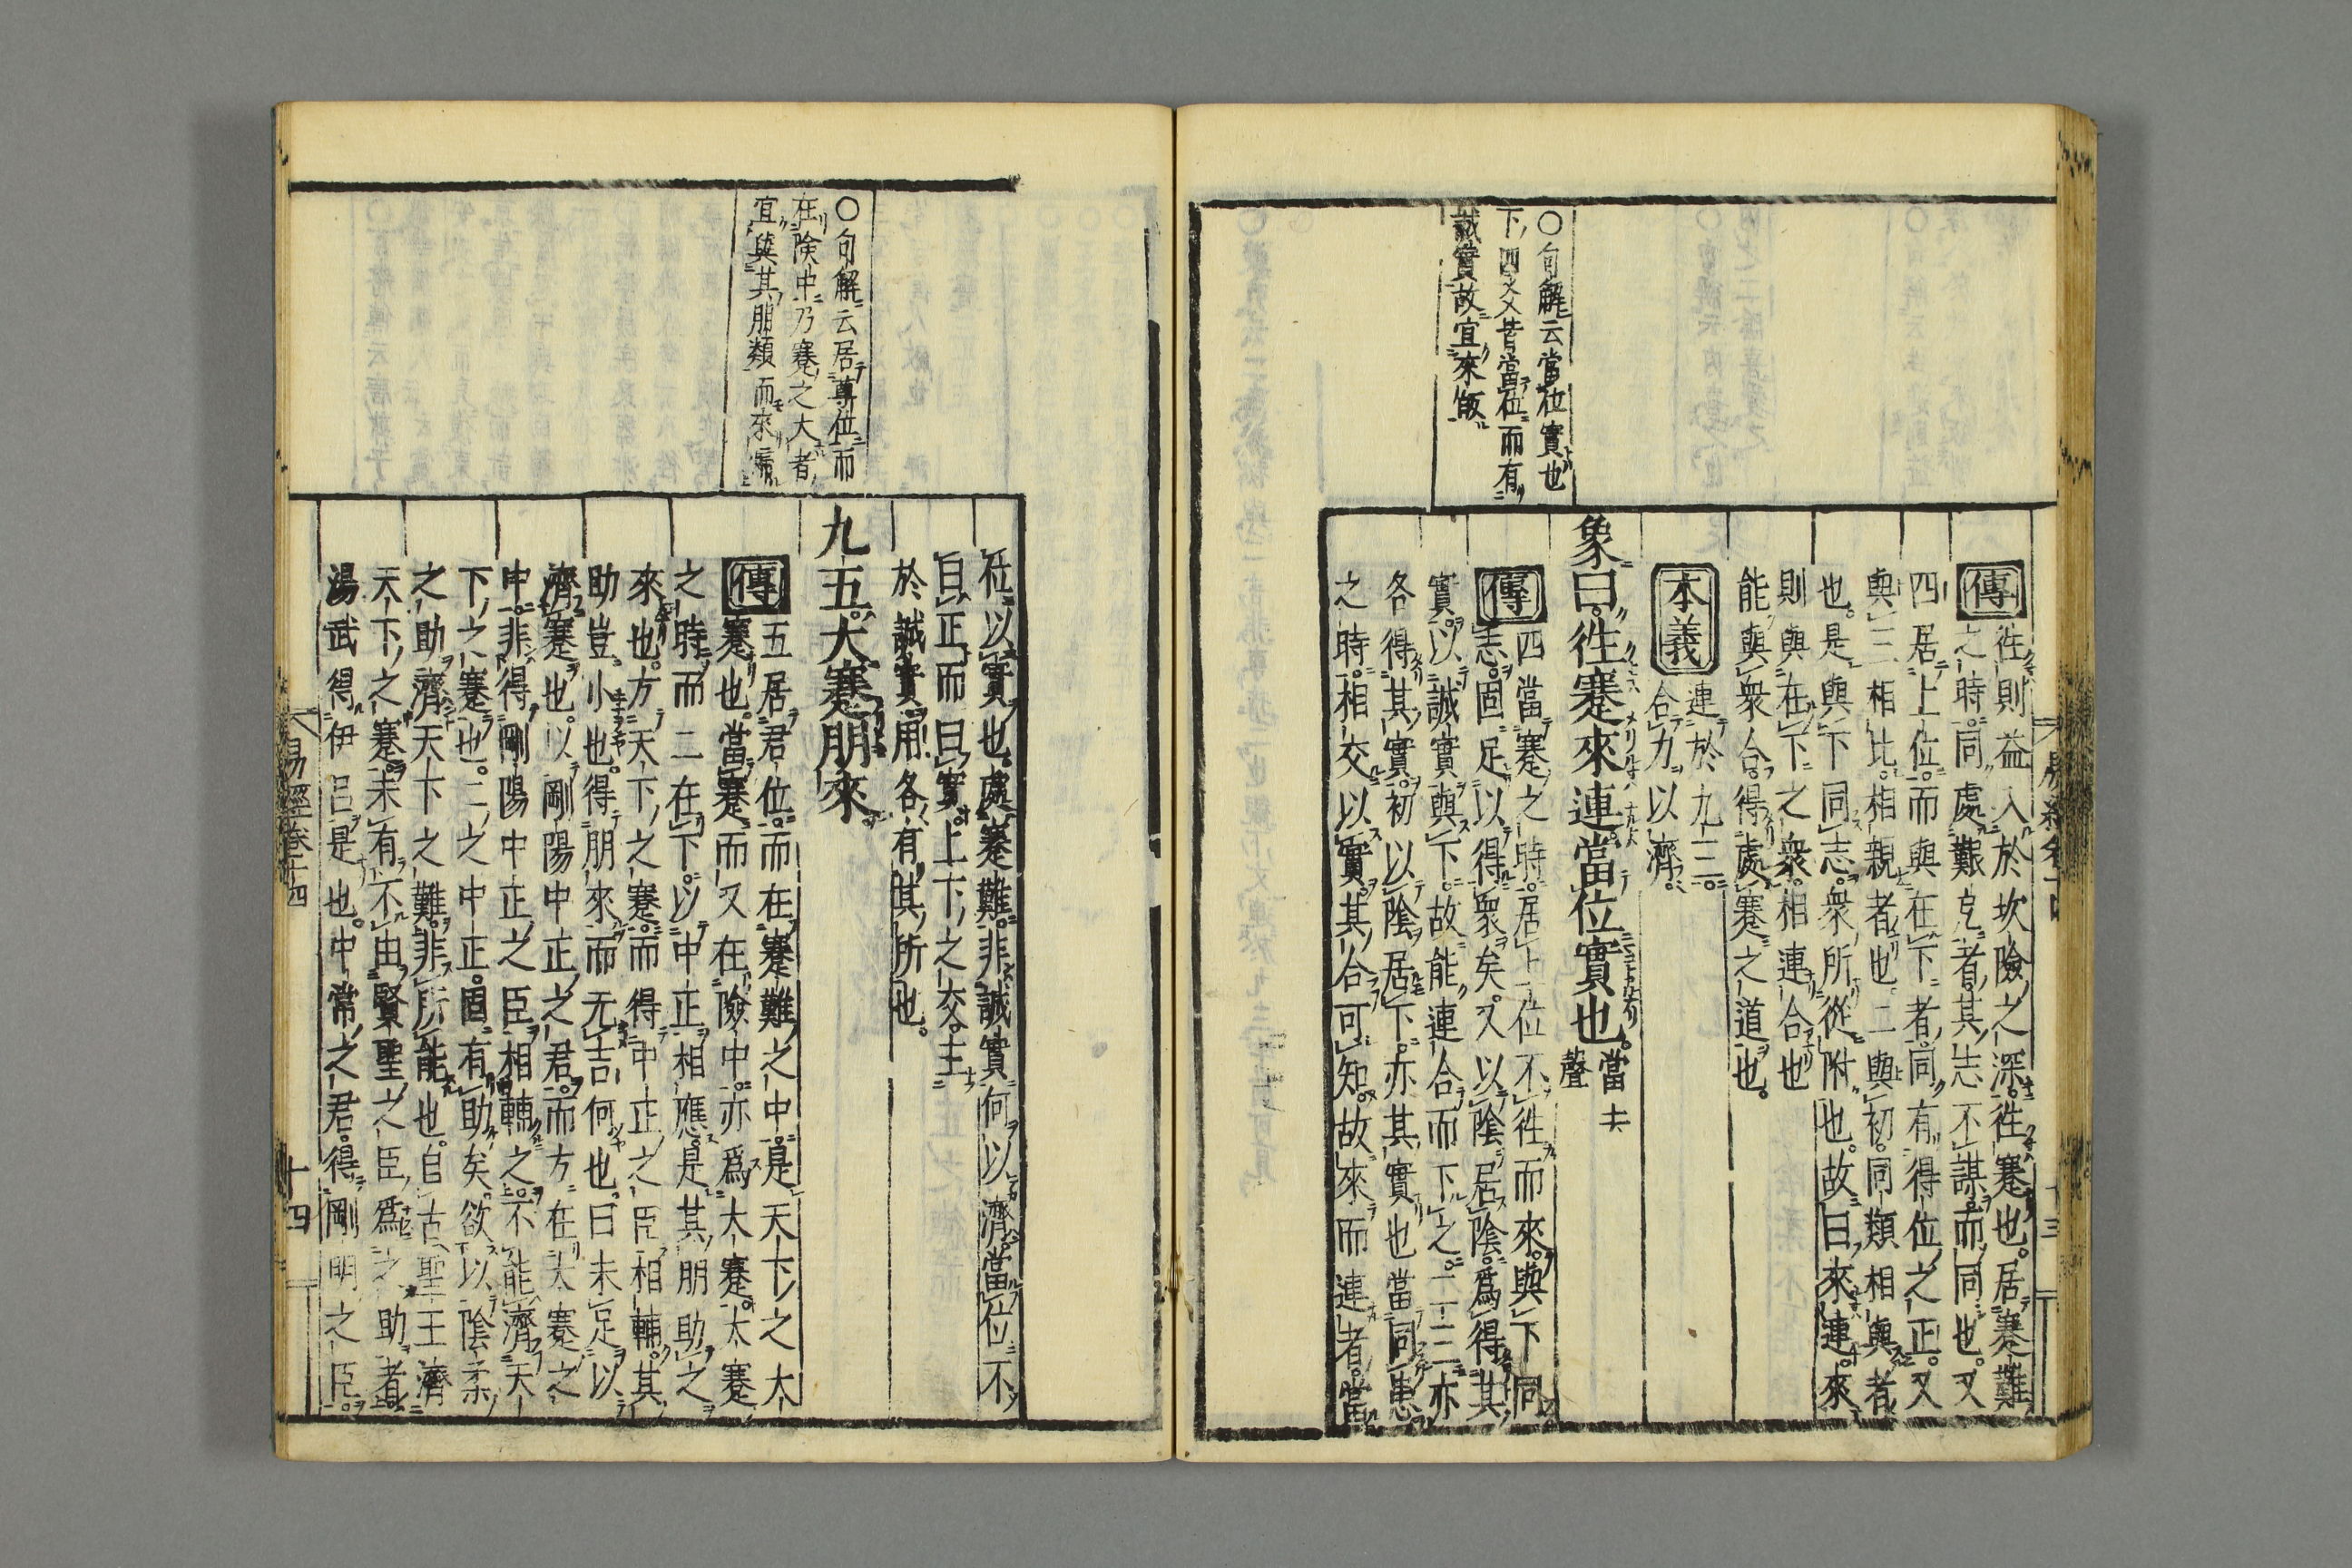 〇句解云當位實也
下四爻皆當位而有
誠實故宜來皈
傳
徃則益入於坎險之深徃蹇也居蹇難
之時同處艱戹者其志不謀而同也又
四居上位而與在下者同有得位之正又
與三相比相親者也二與初同類相與者
也是與下同志衆所從附也故曰來連來
則與在下之衆相連合也
能與衆合得處蹇之道也
本義
連於九三
合力以濟
象曰徃蹇來連當位實也
當去
聲
傳
四當蹇之時居上位不徃而來與下同
志固足以得衆矣又以陰居陰爲得其
實以誠實與下故能連合而下之二三亦
各得其實初以陰居下亦其實也當同患
之時相交以實其合可知故來而連者當
十三
〇句解云居尊位而
在険中乃蹇之大者
宜與其朋類而來歸
位以實也處蹇難非誠實何以濟當位不
曰正而曰實上下之交主
於誠實用各有其所也
九五大蹇朋來
傳
五居君位而在蹇難之中是天下之大
蹇也當蹇而又在險中亦爲大蹇大蹇
之時而二在下以中正相應是其朋助之
來也方天下之蹇而得中正之臣相輔其
助豈小也得朋來而无吉何也曰未足以
濟蹇也以剛陽中正之君而方在大蹇之
中非得剛陽中正之臣相輔之不能濟天
下之蹇也二之中正固有助矣欲以陰柔
之助濟天下之難非所能也自古聖王濟
天下之蹇未有不由賢聖之臣爲之助者
湯武得伊呂是也中常之君得剛明之臣
易經卷十四
十四